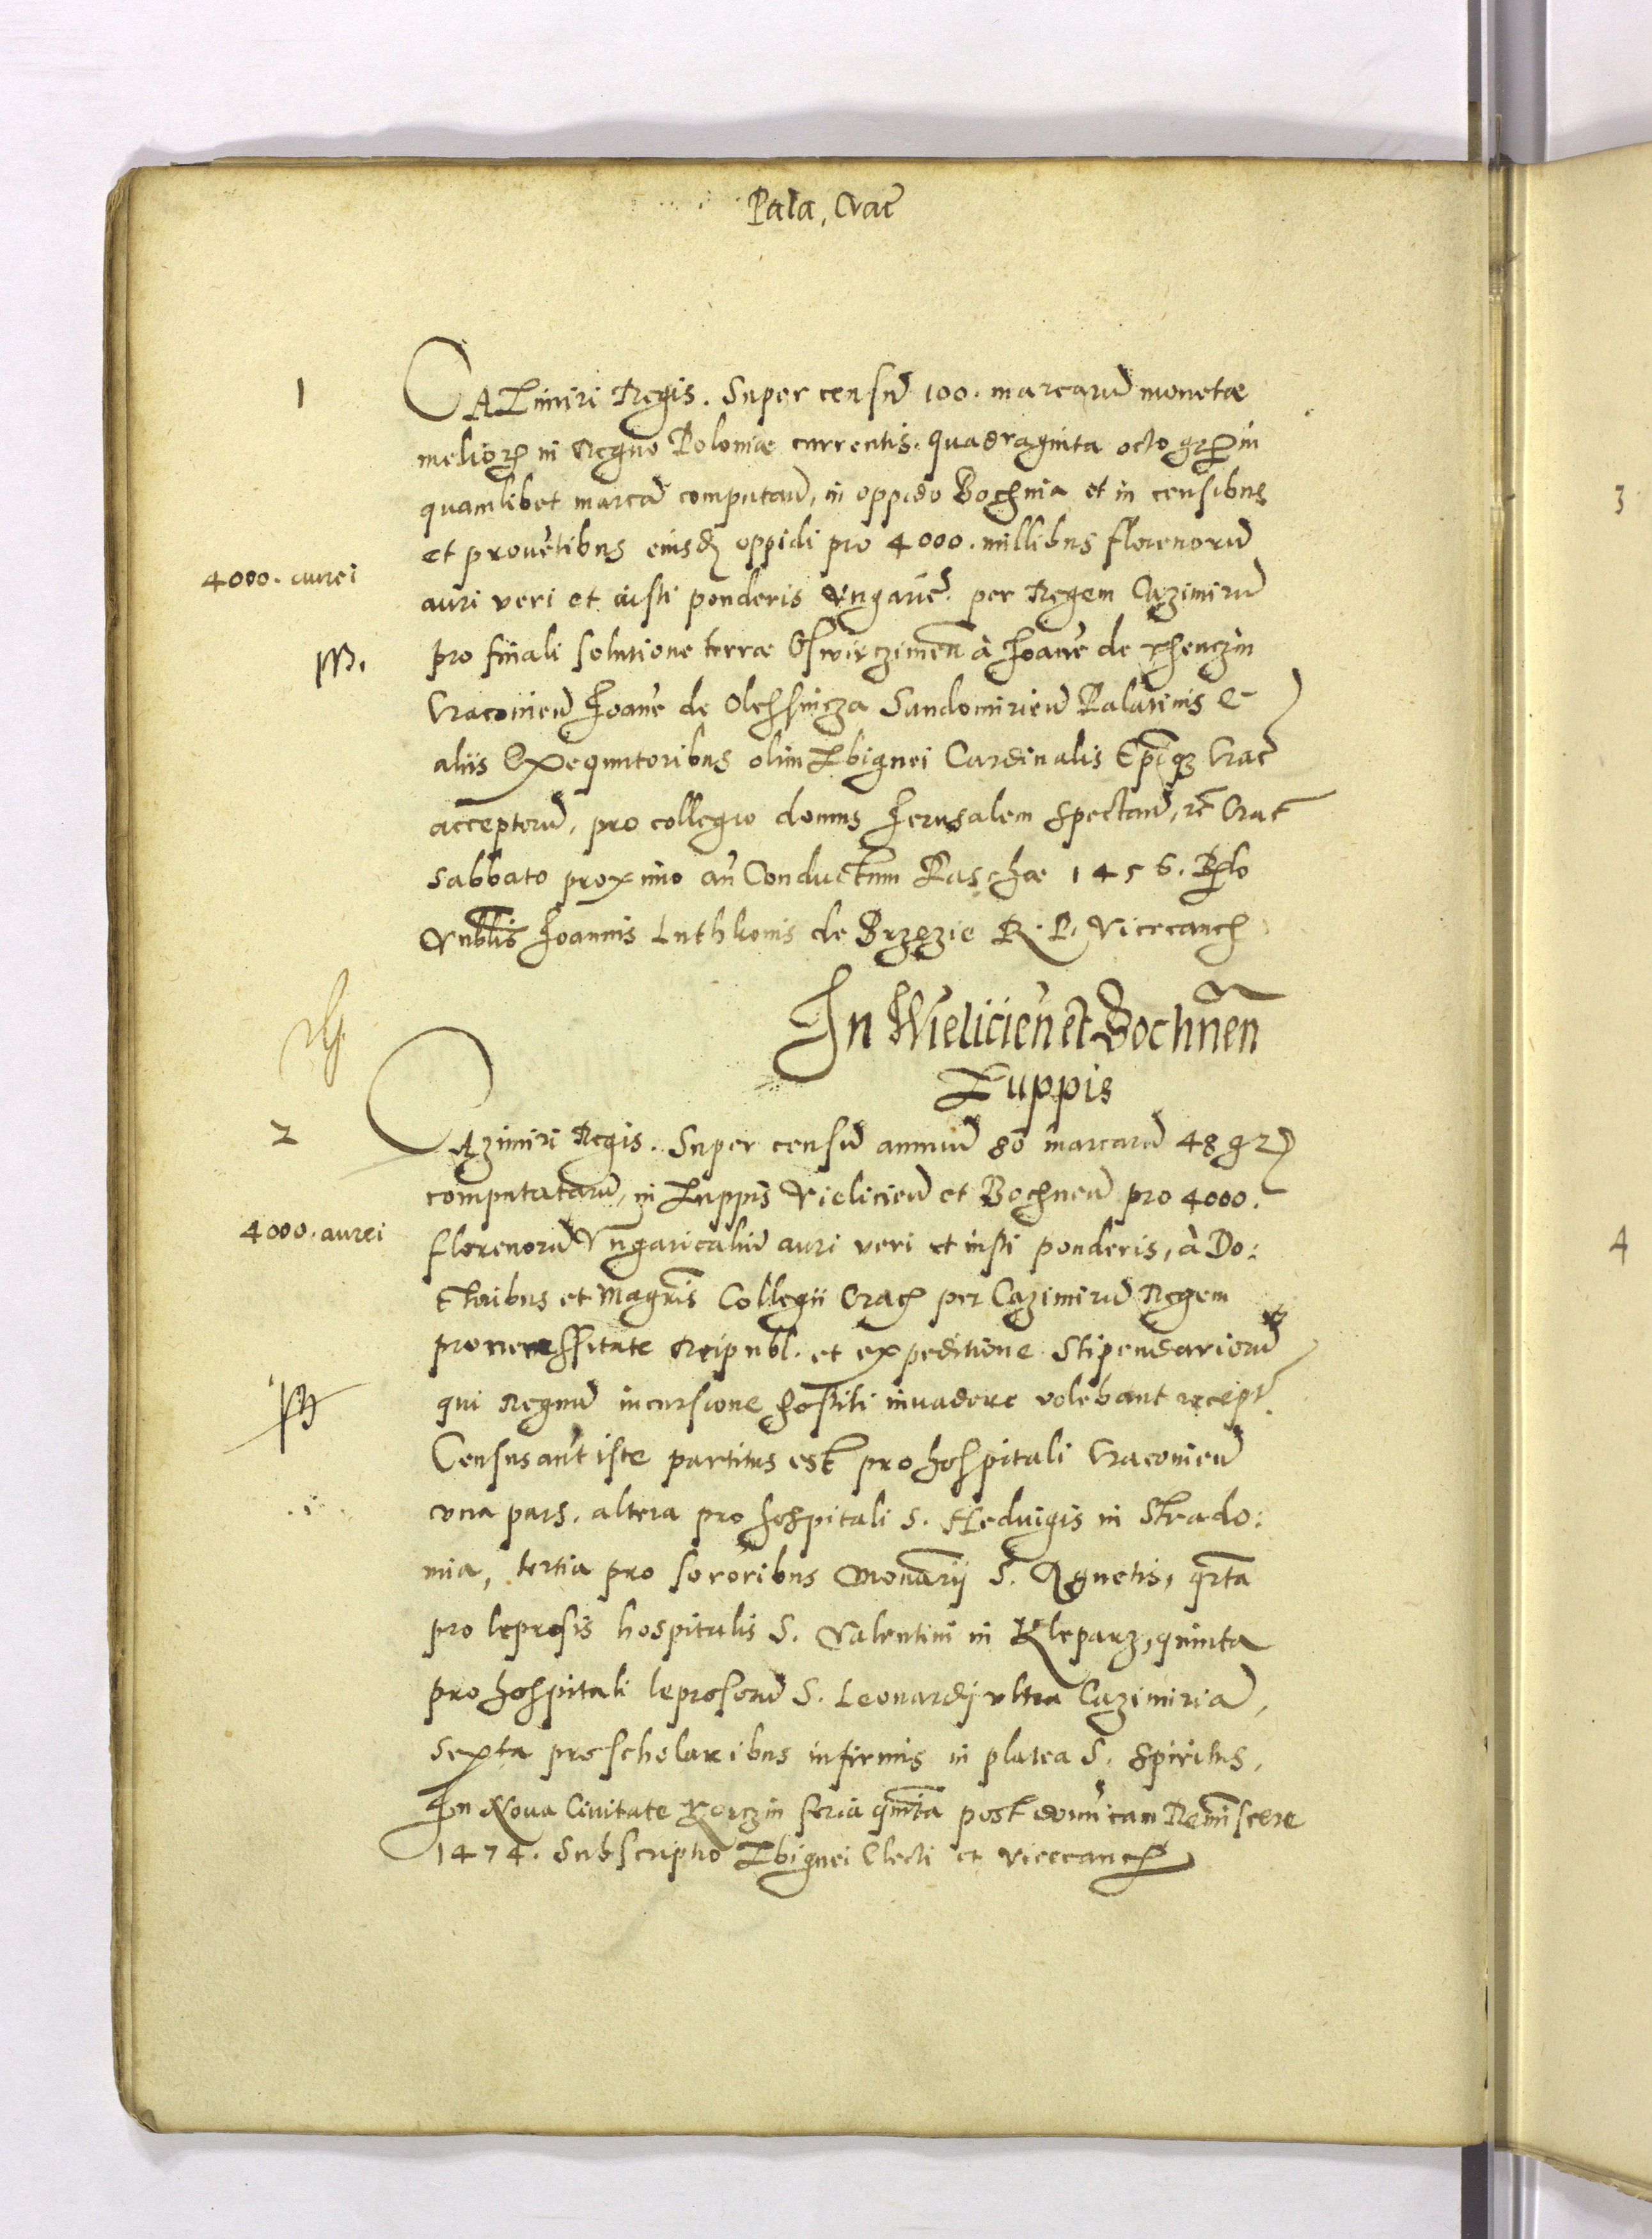 Pala. Crac̄
1
CAZimiri Regis. Super censū 100. marcarū monetæ
melioꝝ in Regno Poloniæ currentis. quadraginta octo gr̄ in
quamlibet marcā computan̄, in oppido Bochnia et in censibus
et prouētibus eiusdē oppidi pro 4000. millibus florenorū
4000. aurei
auri veri et iusti ponderis Vngarıc̄. per Regem Cazimirū
pro finali solutione terræ Oswięczimen̄ à Joan̄e de Thenczin
Cracouien̄ Joan̄e de Olessnicza Sandomirien̄ Palatinis &
aliis Exequutoribus olim Zbignei Cardinalis Ep̄iqꝫ Crac̄
acceptorū, pro collegio domus Jerusalem spectan̄, Crac̄
sabbato proximo an̄ Conductum Paschæ 1456.
Vn̄blis Joannis Luthkonis de Brzezie R. P. Vicecanc̄
In Wielicien̄ et Bochnen̄
Zuppis
2
CAzimiri Regis. Super censū annuū 80 marcarū 48 gr̄
computatarū, in Zuppis Vielicien̄ et Bochnen̄ pro 4000.
4000. aurei
florenorū Vngaricaliū auri veri et iusti ponderis, à Do:
ctoribus et Magr̄is Collegii Crac̄ per Cazimirū Regem
pro necessitate Reipubl. et expeditione Stipendariorū
qui Regnū incursione hostili inuadere volebant recept̄.
Census aūt iste partitus est pro hospitali Cracouien̄
vna pars. altera pro hospitali S. Hedvigis in Strado:
mia, tertia pro sororibus Monar̄ij S. Agnetis, qrta
pro leprosis hospitalis S. Valentini in Kleparz, quinta
pro hospitali leprosorū S. Leonardj vltra Cazimiriā,
sexta pro scholaribus infirmis in platea S. Spiritus,
In Noua Ciuitate Korczin feria qnta post domīcam Reminiscere
1474. Subscriptio Zbignei Electi et vicecanc̄